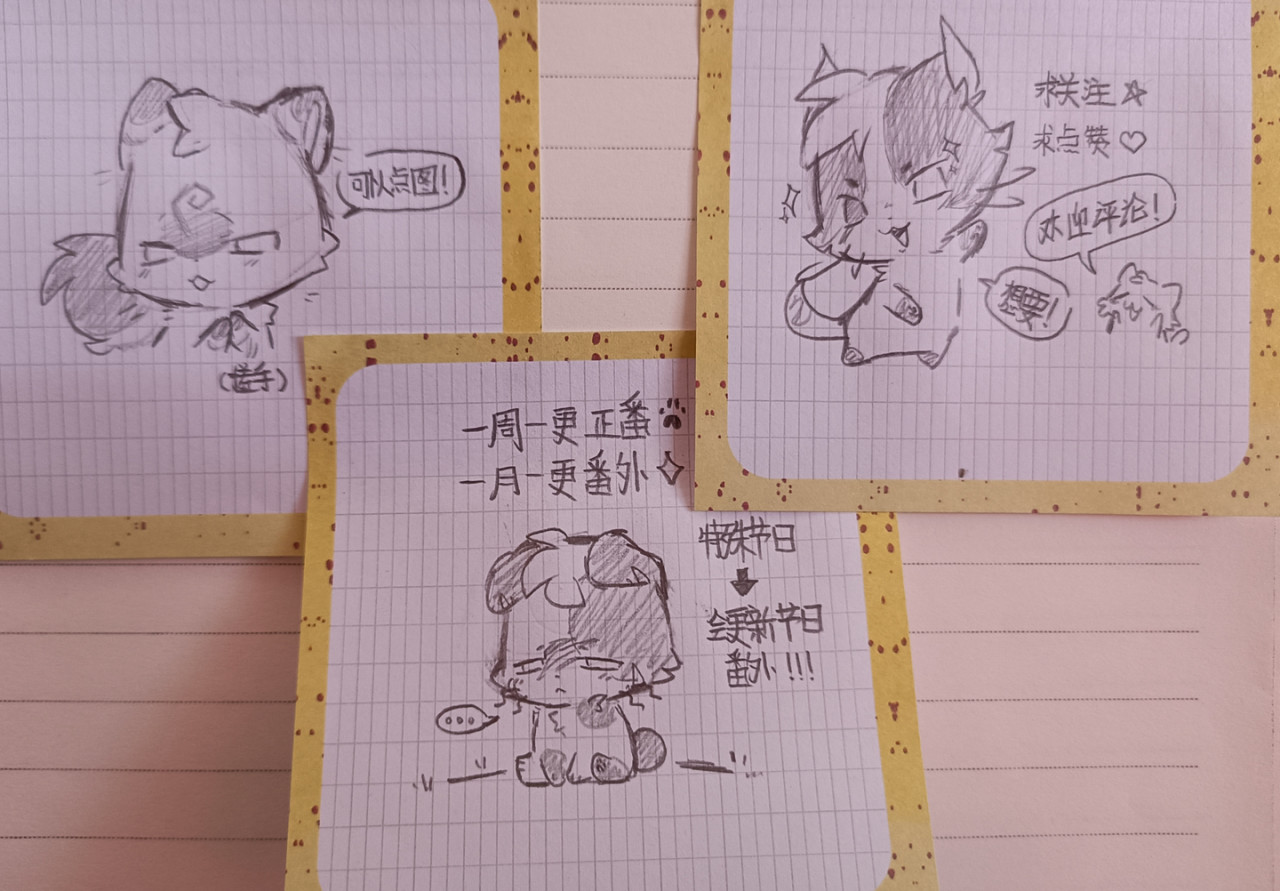 可以点图!
求关注☆
求点赞♡
欢迎评论!
想要!
一周一更正番
一月一更番外
特殊节日
↓
会更新节日
番外!!!
...